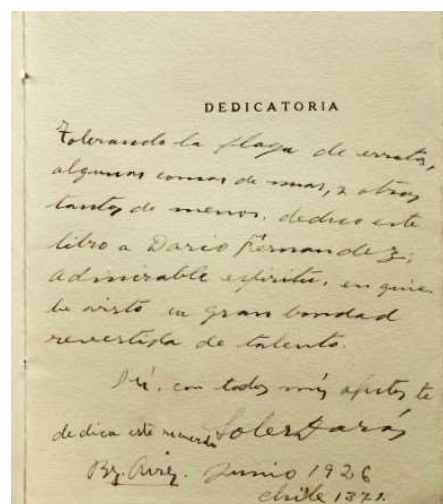 DEDICATORIA
Tolerando la plaga de erratas,
algunas comas de mas, y otras
tantas de menos. dedico este
libro a Dario Fernandez,
admirable espiritu, en quien
he visto su gran bondad
revestida de talento.
Así, con todos mis afectos te
dedica este recuerdo Soler Darás
Bs. Aires. Junio 1926
Chile 1371.